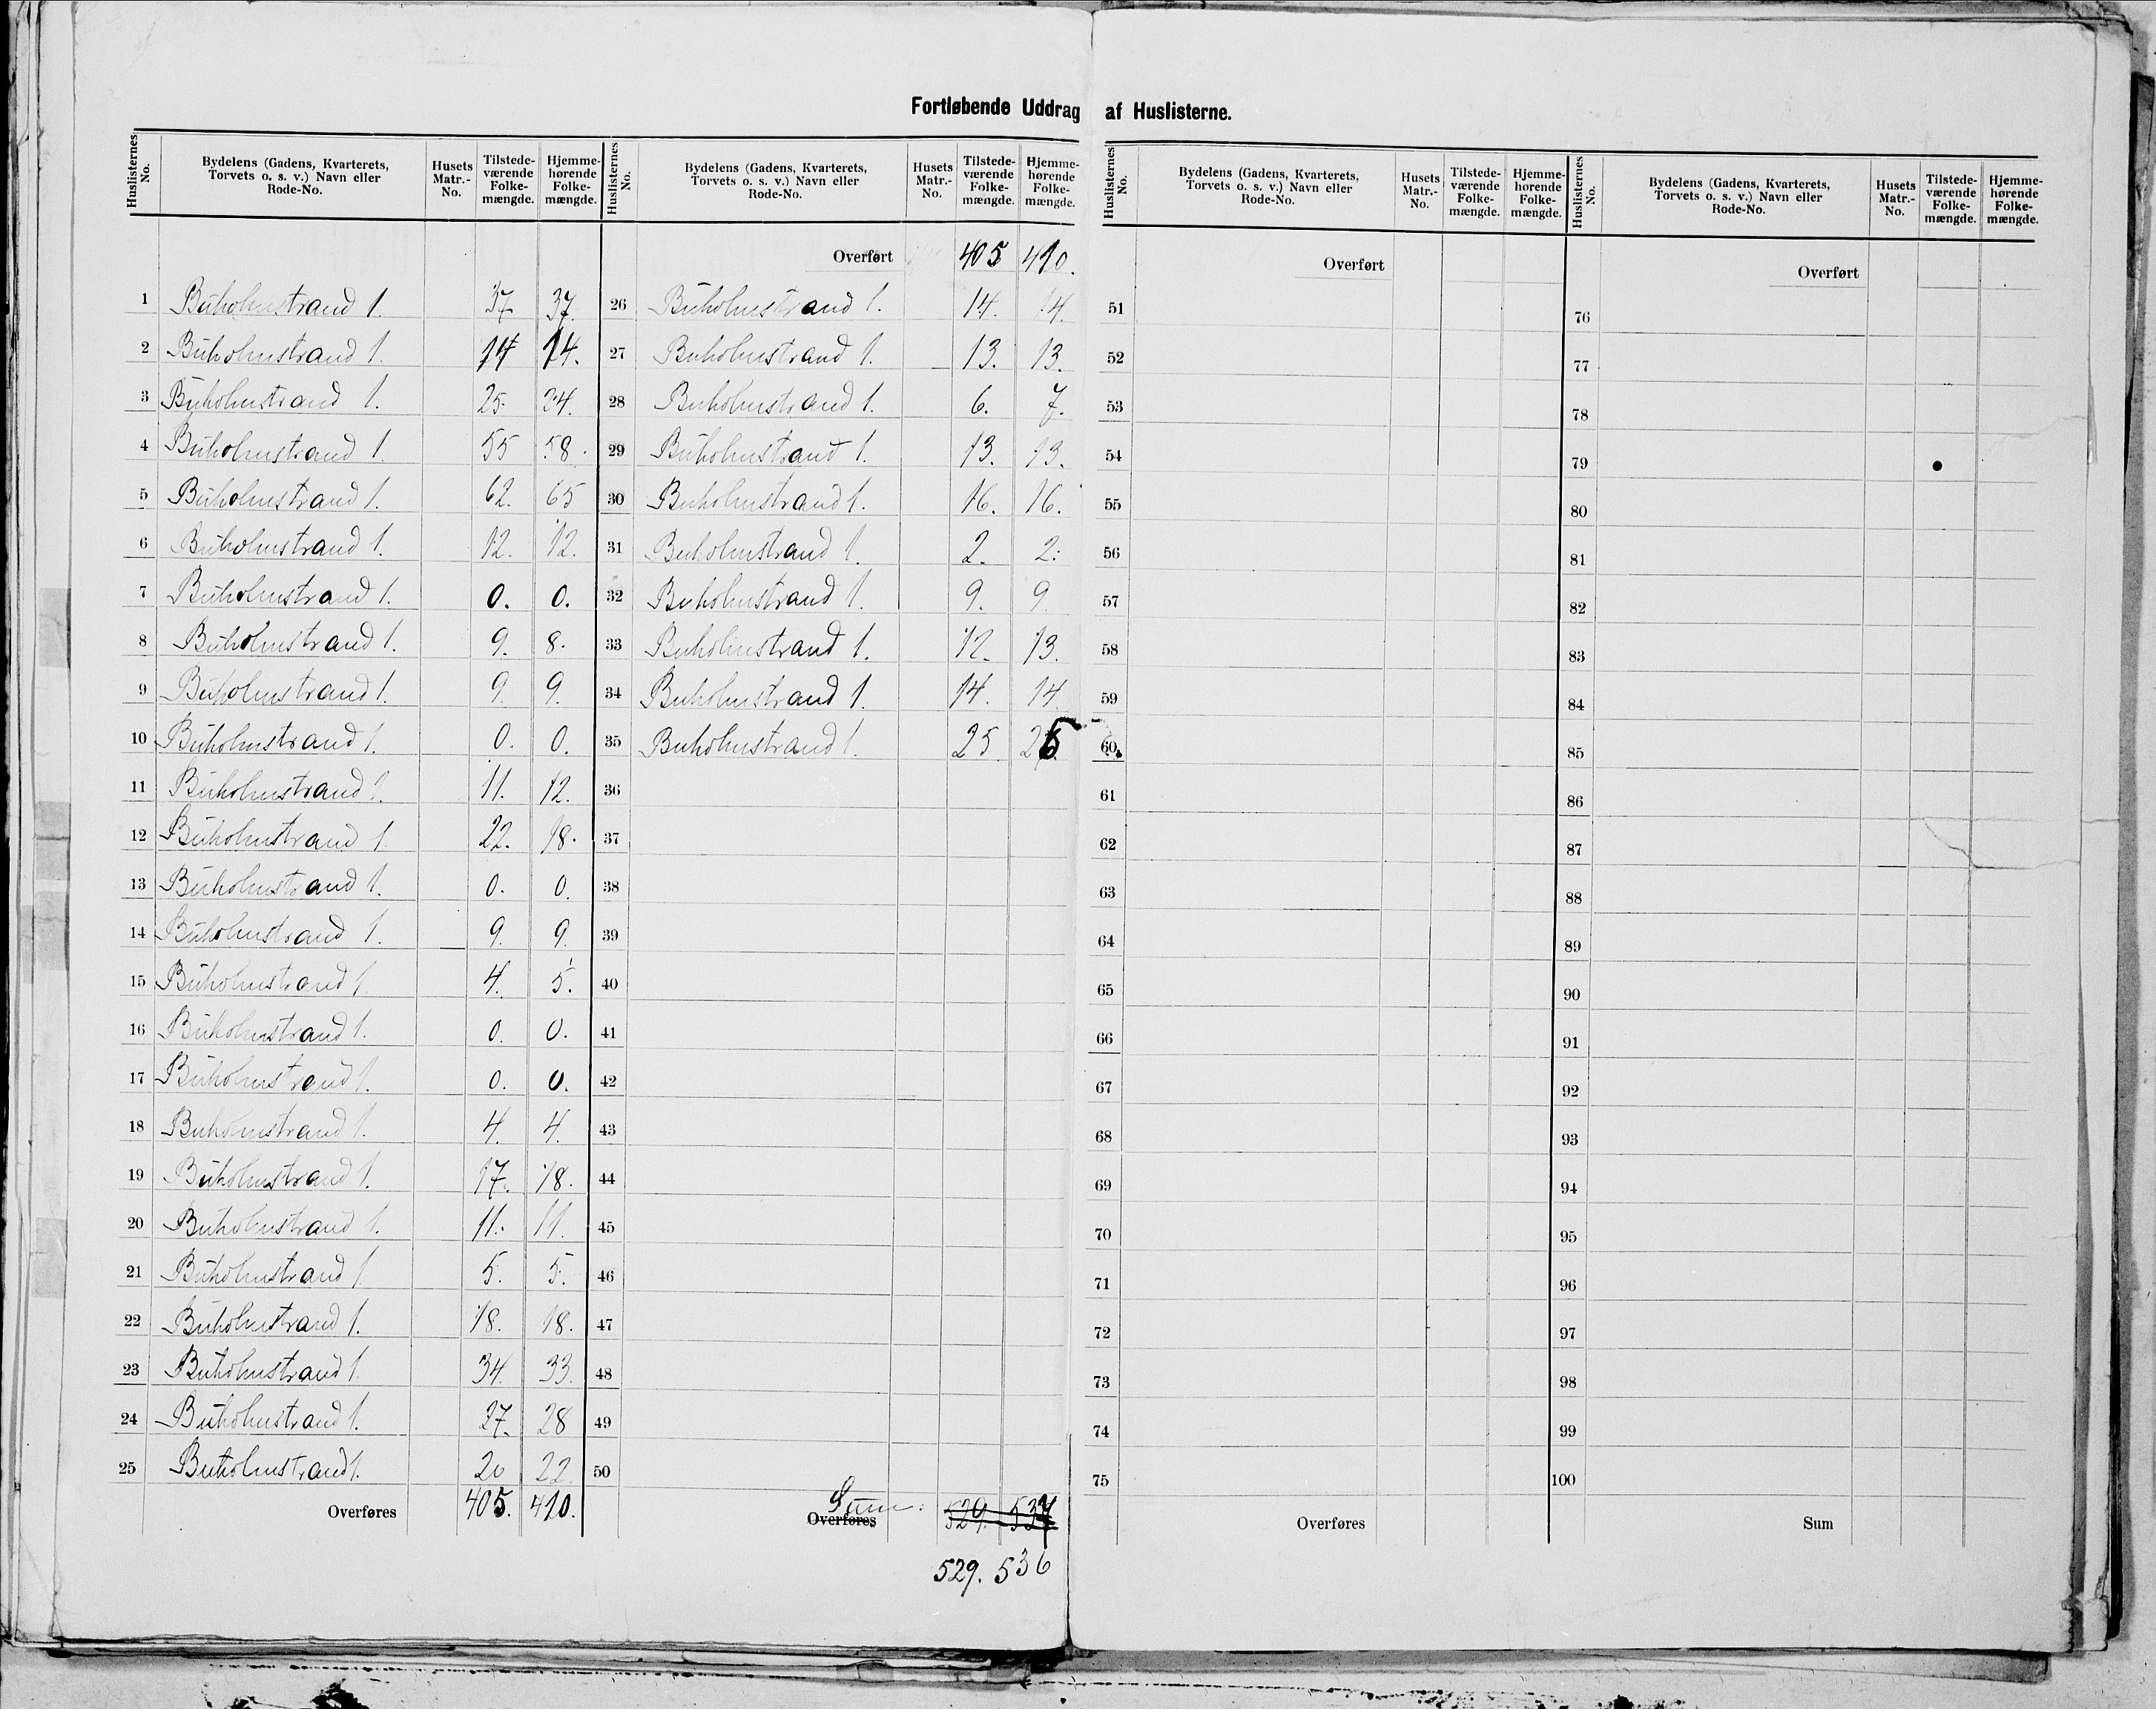 Fortløbende Uddrag af Huslisterne.
Huslisternes No. Bydelens (Gadens, Kvarterets, Torvets o. s. v.) Navn eller Rode-No. Husets Matr.-No. Tilstedeværende Folkemængde. Hjemmehørende Folkemængde.
1 Buholmstrand 1. 37. 37.
2 Buholmstrand 1. 14 14.
3 Buholmstrand 1. 25. 24.
4 Buholmstrand 1. 55 58.
5 Buholmstrand 1. 62. 65
6 Buholmstrand 1. 12. 12.
7 Buholmstrand 1. 0. 0.
8 Buholmstrand 1. 9. 8.
9 Buholmstrand 1. 9. 9.
10 Buholmstrand 1. 0. 0.
11 Buholmstrand 1. 11. 12.
12 Buholmstrand 1. 22. 18.
13 Buholmstrand 1. 0. 0.
14 Buholmstrand 1. 9. 9.
15 Buholmstrand 1. 4. 5.
16 Buholmstrand 1. 0. 0.
17 Buholmstrand 1. 0. 0.
18 Buholmstrand 1. 4. 4.
19 Buholmstrand 1. 17. 18.
20 Buholmstrand 1. 11. 11.
21 Buholmstrand 1. 5. 5.
22 Buholmstrand 1. 18. 18.
23 Buholmstrand 1. 34. 33.
24 Buholmstrand 1. 27. 28
25 Buholmstrand 1. 20 22.
Overføres 405. 410.
Huslisternes No. Bydelens (Gadens, Kvarterets, Torvets o. s. v.) Navn eller Rode-No. Husets Matr.-No. Tilstedeværende Folkemængde. Hjemmehørende Folkemængde.
Overført 405 410.
26 Buholmstrand 1. 14. 14.
27 Buholmstrand 1. 13. 13.
28 Buholmstrand 1. 6. 7.
29 Buholmstrand 1. 13. 13.
30 Buholmstrand 1. 16. 16.
31 Buholmstrand 1. 2. 2.
32 Buholmstrand 1. 9. 9.
33 Buholmstrand 1. 12. 13.
34 Buholmstrand 1. 14. 14.
35 Buholmstrand 1. 25 25
36
37
38
39
40
41
42
43
44
45
46
47
48
49
50
Sum:
Overføres 529. 537
529. 536
Huslisternes No. Bydelens (Gadens, Kvarterets, Torvets o. s. v.) Navn eller Rode-No. Husets Matr.-No. Tilstedeværende Folkemængde. Hjemmehørende Folkemængde.
Overført
51
52
53
54
55
56
57
58
59
60
61
62
63
64
65
66
67
68
69
70
71
72
73
74
75
Overføres
Huslisternes No. Bydelens (Gadens, Kvarterets, Torvets o. s. v.) Navn eller Rode-No. Husets Matr.-No. Tilstedeværende Folkemængde. Hjemmehørende Folkemængde.
Overført
76
77
78
79
80
81
82
83
84
85
86
87
88
89
90
91
92
93
94
95
96
97
98
99
100
Sum